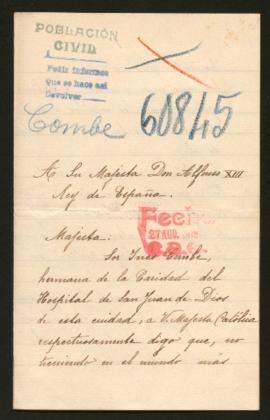 POBLACIÓN
CIVIL
Pedir informes
Que se hace así
Devolver
Combe
60845
A Su Majesta Don Alfonso XIII
Rey de España.
Majesta:
Fecha
27 AGO.
Sor Ines Combe,
hermana de la Caridad del
Hospital de San Juan de Dios
de esta ciudad, a V. Majesta Católica
respectuosamente digo que, no
teniendo en el mundo más